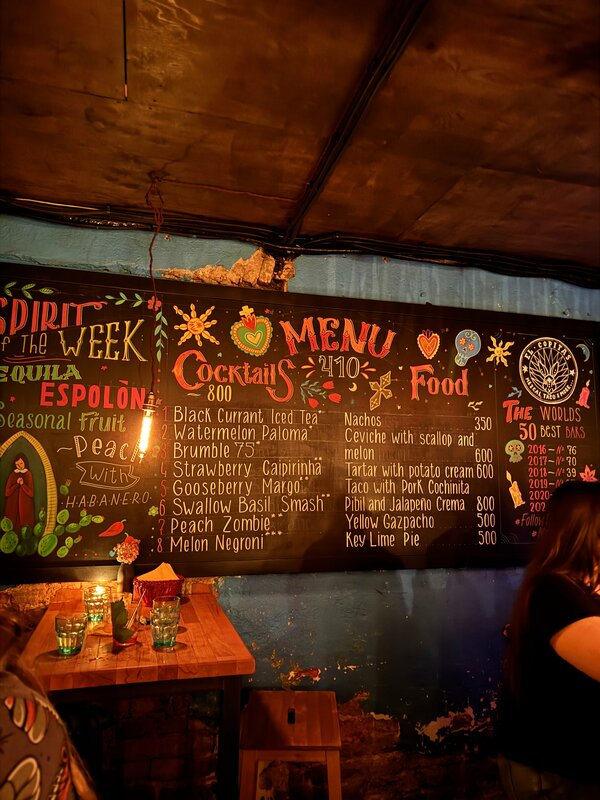 SPIRIT
of THE WEEK
TEQUILA
ESPOLÒN
Seasonal Fruit
~Peach
With
HABANERO
MENU
~410~
Cocktails
~800
1 Black Currant Iced Tea
2 Watermelon Paloma
3 Brumble 75
4 Strawberry Caipirinha
5 Gooseberry Margo
6 Swallow Basil Smash
7 Peach Zombie
8 Melon Negroni
Food
Nachos 350
Ceviche with scallop and
melon 600
Tartar with potato cream 600
Taco with Pork Cochinita
Pibil and Jalapeño Crema 800
Yellow Gazpacho 500
Key Lime Pie 500
EL COPITAS
THE WORLDS
50 BEST BARS
2016 – Nº 76
2017 – Nº 70
2018 – Nº
2019 –
2020
202
Follow